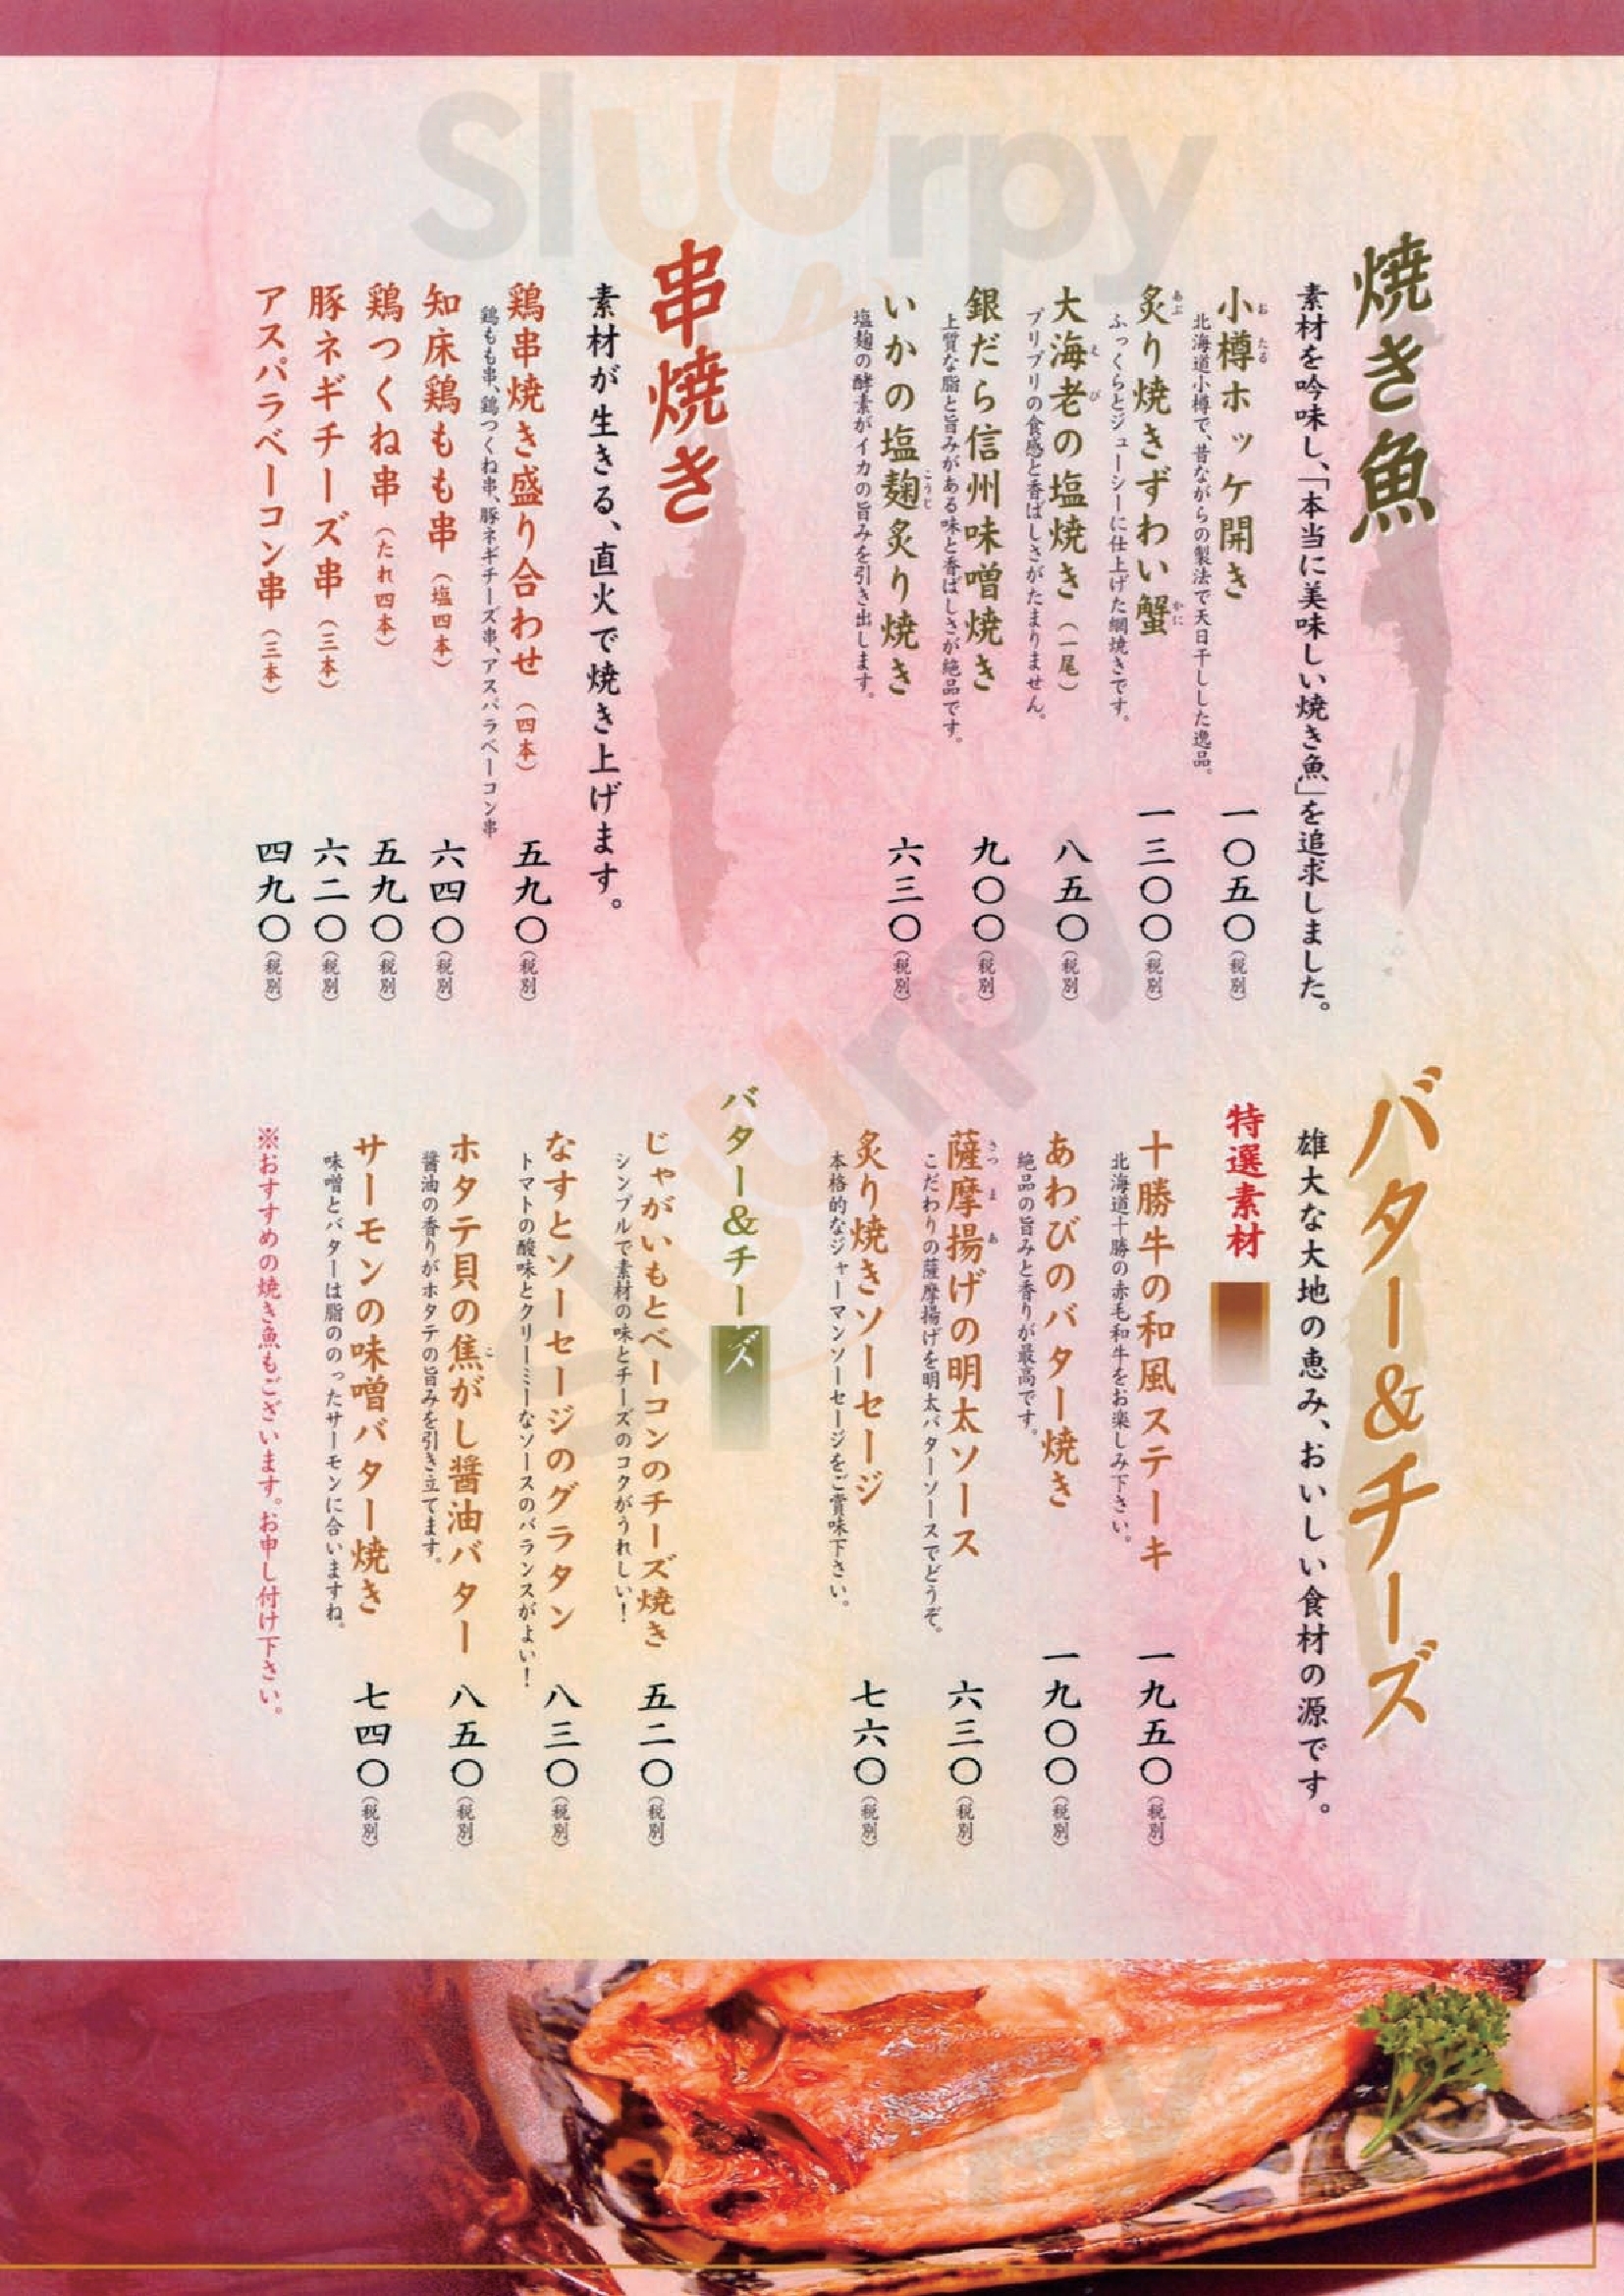 焼き魚
素材を吟味し、「本当に美味しい焼き魚」を追求しました。
小樽ホッケ開き 一〇五〇（税別）
おたる
北海道小樽で、昔ながらの製法で天日干しした逸品。
炙り焼きずわい蟹 一三〇〇（税別）
あぶ
かに
ふっくらとジューシーに仕上げた網焼きです。
大海老の塩焼き（一尾） 八五〇（税別）
えび
プリプリの食感と香ばしさがたまりません。
銀だら信州味噌焼き 九〇〇（税別）
上質な脂と旨みがある味と香ばしさが絶品です。
いかの塩麹炙り焼き 六三〇（税別）
こうじ
塩麹の酵素がイカの旨みを引き出します。
串焼き
素材が生きる、直火で焼き上げます。
鶏串焼き盛り合わせ（四本） 五九〇（税別）
鶏もも串、鶏つくね串、豚ネギチーズ串、アスパラベーコン串
知床鶏もも串（塩四本） 六四〇（税別）
鶏つくね串（たれ四本） 五九〇（税別）
豚ネギチーズ串（三本） 六二〇（税別）
アスパラベーコン串（三本） 四九〇（税別）
バター&チーズ
雄大な大地の恵み、おいしい食材の源です。
特選素材
十勝牛の和風ステーキ 一九五〇（税別）
北海道十勝の赤毛和牛をお楽しみ下さい。
あわびのバター焼き 一九〇〇（税別）
絶品の旨みと香りが最高です。
薩摩揚げの明太ソース 六三〇（税別）
さつまあ
こだわりの薩摩揚げを明太バターソースでどうぞ。
炙り焼きソーセージ 七六〇（税別）
本格的なジャーマンソーセージをご賞味下さい。
バター&チーズ
じゃがいもとベーコンのチーズ焼き 五二〇（税別）
シンプルで素材の味とチーズのコクがうれしい！
なすとソーセージのグラタン 八三〇（税別）
トマトの酸味とクリーミーなソースのバランスがよい！
ホタテ貝の焦がし醤油バター 八五〇（税別）
こ
醤油の香りがホタテの旨みを引き立てます。
サーモンの味噌バター焼き 七四〇（税別）
味噌とバターは脂ののったサーモンに合いますね。
※おすすめの焼き魚もございます。お申し付け下さい。
Sluurpy
Sluurpy